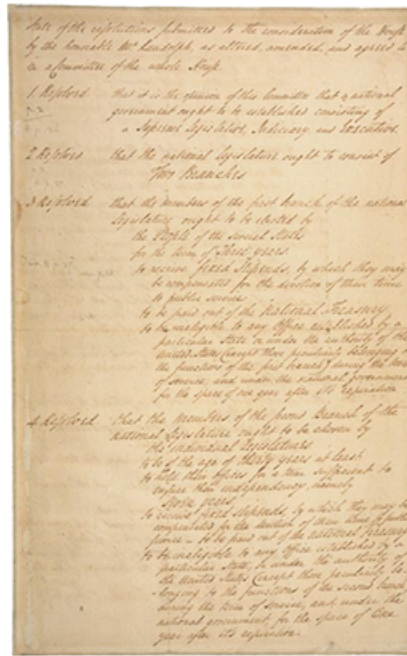 State of the resolutions submitted to the consideration of the House
by the honorable Mr. Randolph, as altered, amended, and agreed to
in a Committee of the whole House.
1 Resolved that it is the opinion of this Committee that a national
government ought to be established consisting of
a Supreme Legislative, Judiciary, and Executive.
2 Resolved that the national legislature ought to consist of
Two Branches
3 Resolved that the members of the first branch of the national
Legislature ought to be elected by
the People of the several States
for the term of Three years
to receive fixed stipends, by which they may
be compensated for the devotion of their time
to public service
to be paid out of the National Treasury
to be ineligible to any Office established by a
particular State or under the authority of the
United States (except those peculiarly belonging to
the functions of the first branch) during the term
of service, and under the national government
for the space of one year after its expiration
4 Resolved that the members of the second Branch of the
national Legislature ought to be chosen by
the individual Legislatures
to be of the age of thirty years at least
to hold their offices for a term sufficient to
ensure their independency, namely
seven years
to receive fixed stipends, by which they may be
compensated for the devotion of their time to public
service – to be paid out of the national Treasury
to be ineligible to any Office established by a
particular State, or under the authority of
the United States (except those peculiarly be-
longing to the functions of the second branch)
during the term of service, and under the
national government, for the space of One
year after its expiration.